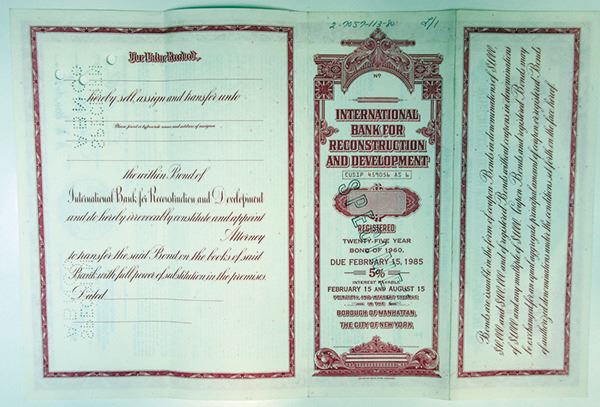 2-7057-113-80 2/1
For Value Received,
hereby sell, assign and transfer unto
the within Bond of
International Bank for Reconstruction and Development
and do hereby irrevocably constitute and appoint
Attorney
to transfer the said Bond on the books of said
Bank with full power of substitution in the premises.
Dated
Nº
INTERNATIONAL
BANK FOR
RECONSTRUCTION
AND DEVELOPMENT
CUSIP 459056 AS 6
SPECIMEN
REGISTERED
TWENTY-FIVE YEAR
BOND OF 1960,
DUE FEBRUARY 15, 1985
5%
INTEREST PAYABLE
FEBRUARY 15 AND AUGUST 15
PRINCIPAL AND INTEREST PAYABLE
IN THE
BOROUGH OF MANHATTAN,
THE CITY OF NEW YORK
Bonds are issuable in the form of coupon Bonds in denominations of $1,000,
$10,000 and $100,000 and of registered Bonds without coupons in denominations
of $1,000 and any multiple of $1,000. Coupon Bonds and registered Bonds may
be exchanged for an equal aggregate principal amount of coupon or registered Bonds
of authorized denominations under the conditions set forth on the face hereof.